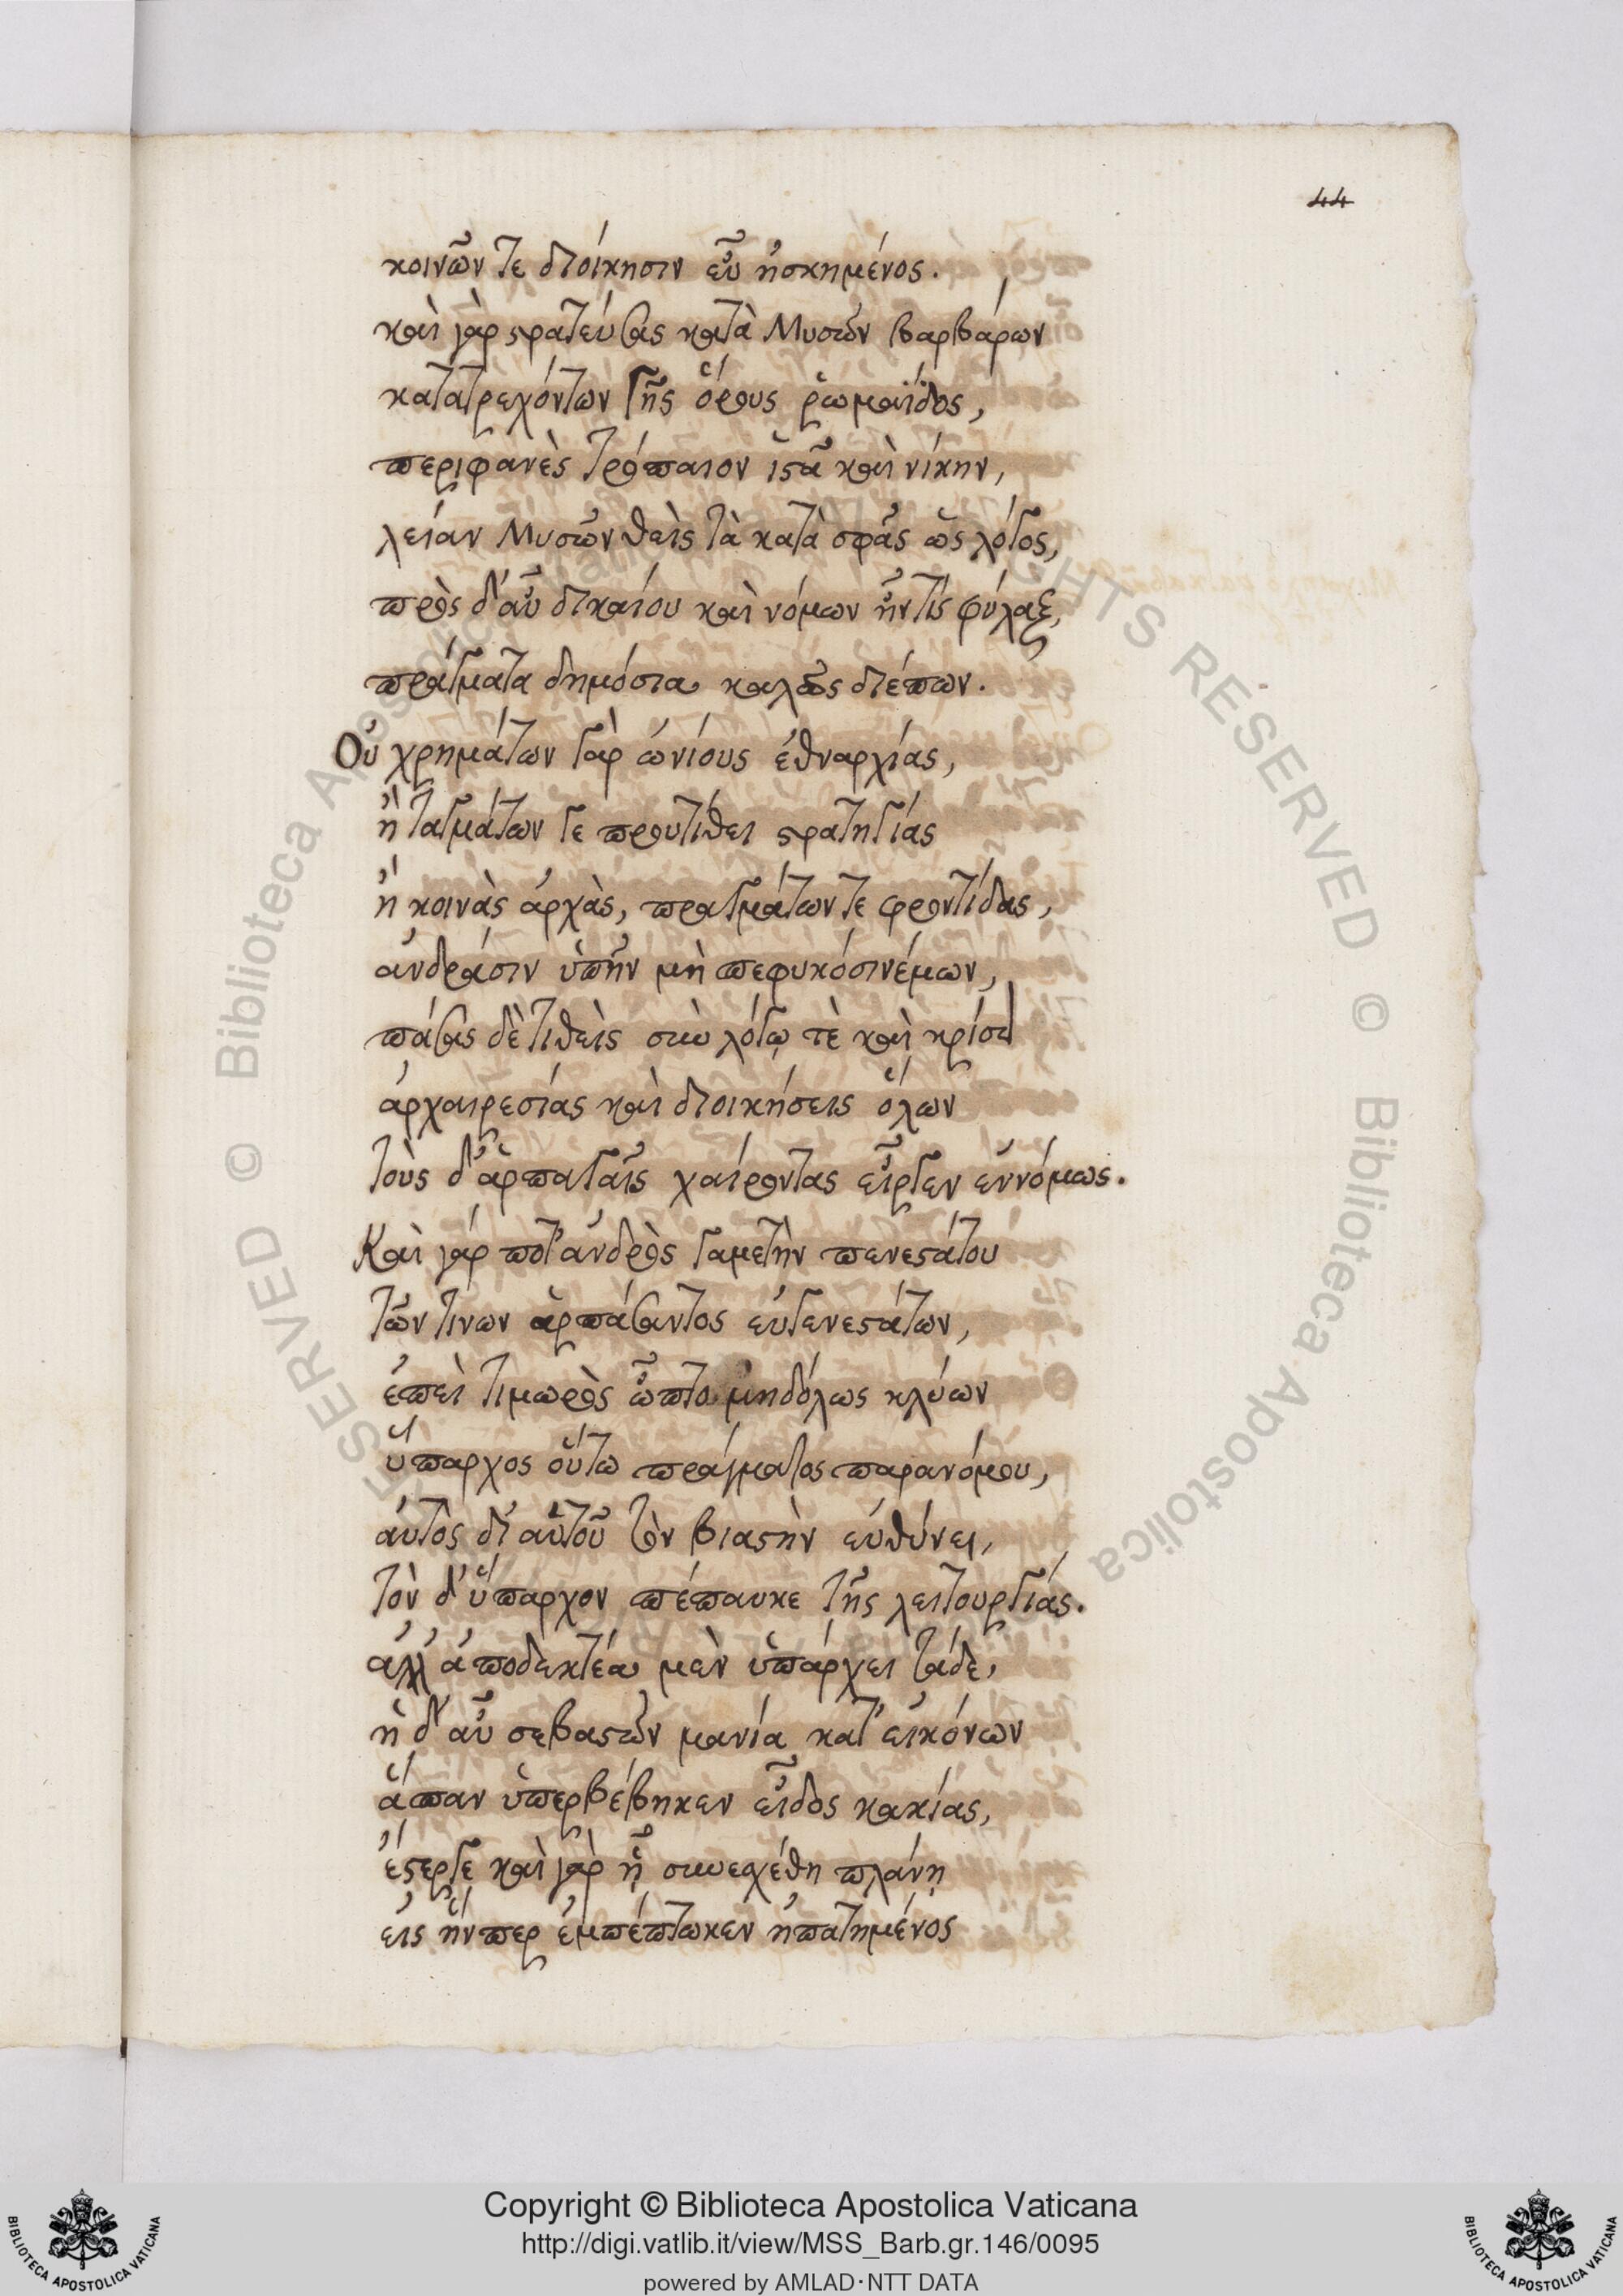 44
κοινῶν τε διοίκησιν εὖ ἠσκημένος.
καὶ γὰρ στρατεύσας κατὰ Μυσῶν βαρβάρων
κατατρεχόντων γῆς ὅρους ῥωμαΐδος,
περιφανὲς τρόπαιον ἱστᾶ καὶ νίκην,
λείαν Μυσῶν θεὶς τὰ κατὰ σφᾶς ὡς λόγος,
πρὸς δ' αὖ δικαίου καὶ νόμων ἦν τις φύλαξ,
πράγματα δημόσια καλῶς διέπων.
Οὐ χρημάτων γὰρ ὠνίους ἐθναρχίας,
ἢ ταγμάτων γε προυτίθει στρατηγίας
ἢ κοινὰς ἀρχὰς, πραγμάτων τε φροντίδας,
ἀνδράσιν ὑπῆν μὴ πεφυκόσι νέμων,
πάσας δὲ τιθεὶς σὺν λόγῳ τὲ καὶ κρίσει
ἀρχαιρεσίας καὶ διοικήσεις ὅλων
τοὺς δ' ἁρπαγαῖς χαίροντας εἶργεν ἐννόμως.
Καὶ γάρ ποτ' ἀνδρὸς γαμετὴν πενεστάτου
τῶν τινων ἁρπάσαντος εὐγενεστάτων,
ἐπεὶ τιμωρὸς ὦπτο μηδόλως κλύων
ὕπαρχος οὕτω πράγματος παρανόμου,
αὐτὸς δι' αὑτοῦ τὸν βιαστὴν εὐθύνει,
τὸν δ' ὕπαρχον πέπαυκε τῆς λειτουργίας.
ἀλλ' ἀποδεκτέα μὲν ὑπάρχει τάδε,
ἡ δ' αὖ σεβαστῶν μανία κατ' εἰκόνων
ἅπαν ὑπερβέβηκεν εἶδος κακίας,
ἔστεργε καὶ γὰρ ᾗ συνεσχέθη πλάνῃ
εἰς ἥνπερ ἐμπέπτωκεν ἠπατημένος
© Biblioteca Apostolica Vaticana
RIGHTS RESERVED
© Biblioteca Apostolica
BIBLIOTECA APOSTOLICA VATICANA
Copyright © Biblioteca Apostolica Vaticana
http://digi.vatlib.it/view/MSS_Barb.gr.146/0095
powered by AMLAD·NTT DATA
BIBLIOTECA APOSTOLICA VATICANA